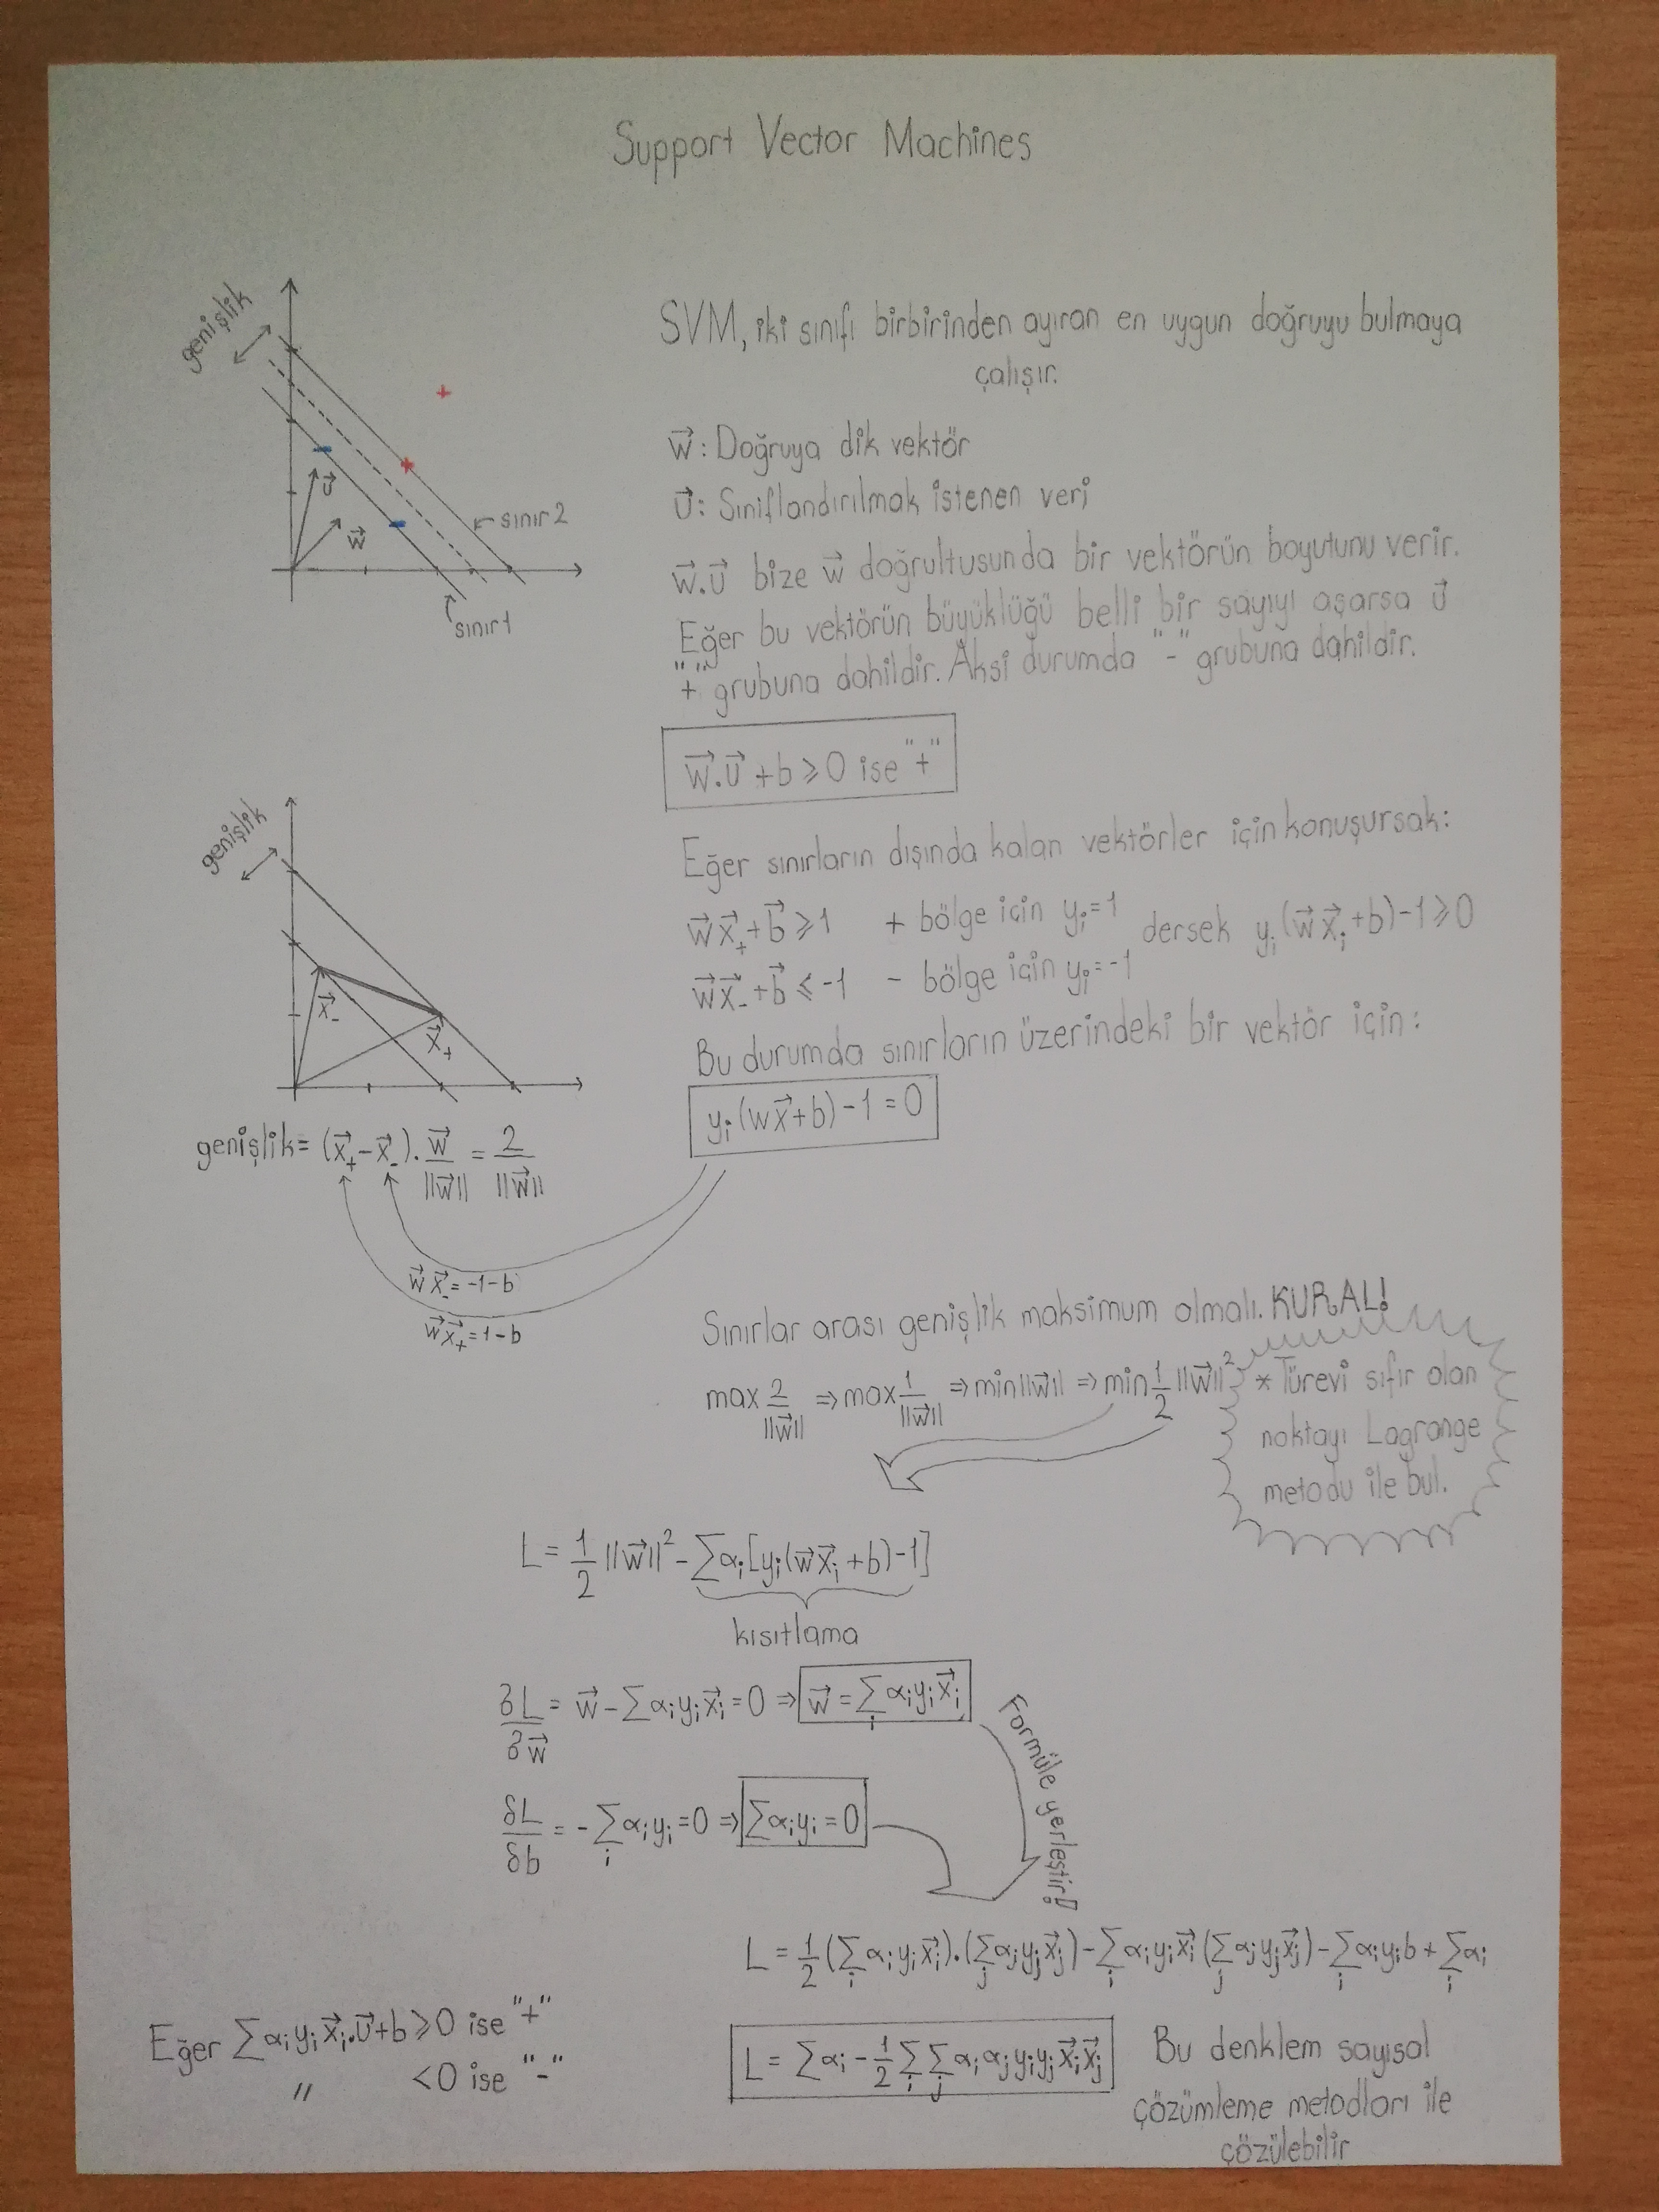 Support Vector Machines
genişlik
u⃗
w⃗
sınır 2
sınır 1
SVM, iki sınıfı birbirinden ayıran en uygun doğruyu bulmaya
çalışır.
w⃗: Doğruya dik vektör
u⃗: Sınıflandırılmak istenen veri
w⃗.u⃗ bize w⃗ doğrultusunda bir vektörün boyutunu verir.
Eğer bu vektörün büyüklüğü belli bir sayıyı aşarsa u⃗
"+" grubuna dahildir. Aksi durumda "-" grubuna dahildir.
w⃗.u⃗ + b ≥ 0 ise "+"
Eğer sınırların dışında kalan vektörler için konuşursak:
w⃗x⃗₊ + b⃗ ≥ 1 + bölge için yᵢ = 1 dersek yᵢ(w⃗x⃗ᵢ + b) - 1 ≥ 0
w⃗x⃗₋ + b⃗ ≤ -1 - bölge için yᵢ = -1
Bu durumda sınırların üzerindeki bir vektör için:
yᵢ(wx⃗ + b) - 1 = 0
genişlik
x⃗₋
x⃗₊
genişlik = (x⃗₊ - x⃗₋) . w⃗/||w⃗|| = 2/||w⃗||
w⃗x⃗₋ = -1 - b
w⃗x⃗₊ = 1 - b
Sınırlar arası genişlik maksimum olmalı. KURAL!
max 2/||w⃗|| ⇒ max 1/||w⃗|| ⇒ min||w⃗|| ⇒ min 1/2 ||w⃗||²
* Türevi sıfır olan
noktayı Lagrange
metodu ile bul.
L = 1/2 ||w⃗||² - ∑αᵢ[yᵢ(w⃗x⃗ᵢ + b) - 1]
kısıtlama
∂L/∂w⃗ = w⃗ - ∑αᵢyᵢx⃗ᵢ = 0 ⇒ w⃗ = ∑ᵢ αᵢyᵢx⃗ᵢ
δL/δb = -∑ᵢ αᵢyᵢ = 0 ⇒ ∑αᵢyᵢ = 0
Formüle yerleştir!
L = 1/2 (∑ᵢ αᵢyᵢx⃗ᵢ).(∑ⱼ αⱼyⱼx⃗ⱼ) - ∑ᵢ αᵢyᵢx⃗ᵢ(∑ⱼ αⱼyⱼx⃗ⱼ) - ∑ᵢ αᵢyᵢb + ∑ᵢ αᵢ
L = ∑αᵢ - 1/2 ∑ᵢ ∑ⱼ αᵢαⱼyᵢyⱼx⃗ᵢx⃗ⱼ
Bu denklem sayısal
çözümleme metodları ile
çözülebilir
Eğer ∑αᵢyᵢx⃗ᵢ.u⃗ + b ≥ 0 ise "+"
" < 0 ise "-"